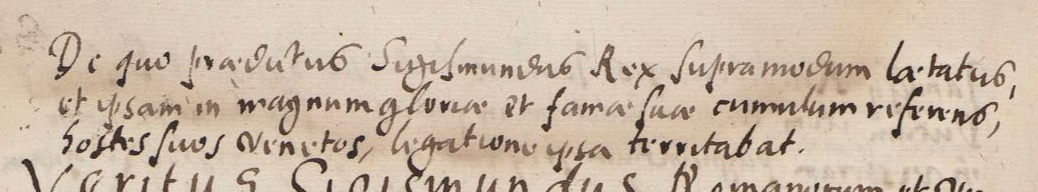 De quo prædictus Sigismundus Rex supramodum lætatus,
et ipsam in magnum gloriæ et famæ suæ cumulum referens,
hostes suos Venetos, legatione ipsa territabat.
Sigismundus Romanorum et